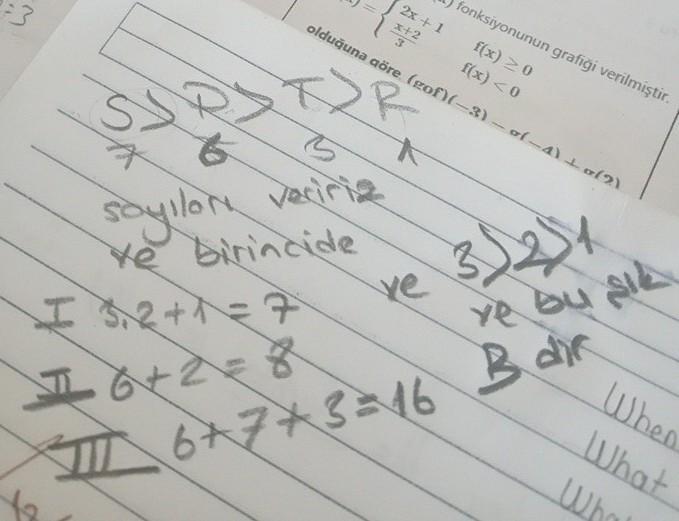 fonksiyonunun grafiği verilmiştir.
2x + 1 f(x) ≥ 0
x+2/3 f(x) < 0
olduğuna göre (gof)(-3) - g(-4) + g(2)
S > P > T > R
7 6 3 1
sayıları veririz
ve birincide
I 3.2+1 = 7
II 6+2 = 8
III 6+7+3=16
ve 3>2>1
ve bu şık
B dir
When
What